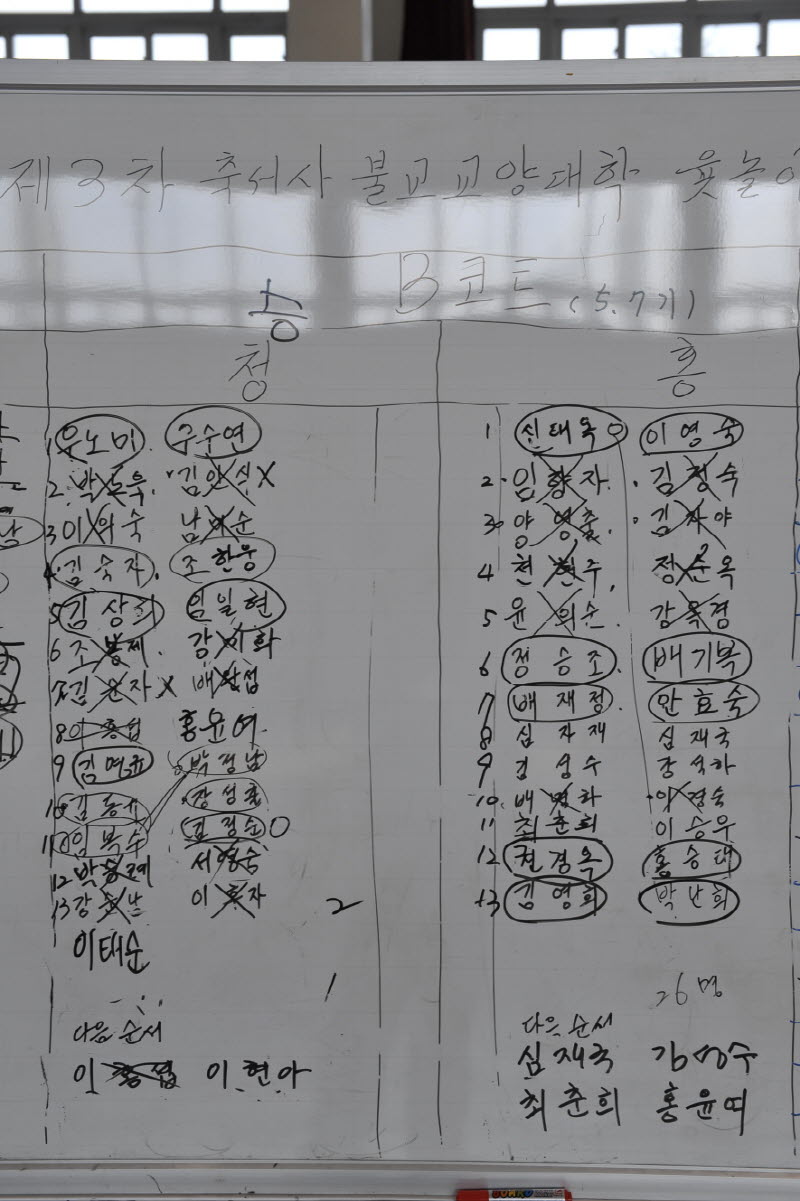 제3차 축서사 불교교양대학 윷놀이
B코트 (5.7기)
승
청
1 우노미 구수연
2. 박 김인식 X
3 이 숙 남 순
4. 김숙자. 조한웅
5 김상희 임일현
6 조봉제. 강 화
김 자 X 배 섭
8 이 홍윤여
9 김명규 박정남
10 김동 강성호
11 임복수 김정순 O
12 박 서 숙
13 강 이 자
이태순
2
1
다음 순서
이 이현아
홍
1 신태옥 이영숙
2. 임향자. 김정숙
3. 양영출. 김자야
4 현 주, 정순옥
5 윤 순. 강옥경
6 정승조. 배기복
7 배재정. 안효숙
8 심자재 심재국
9 김성수 강석하
10. 배 하 이경숙
11 최춘희 이승우
12 권경옥 홍승태
13 김영희 박난희
26명
다음 순서
심재국 김성수
최춘희 홍윤여